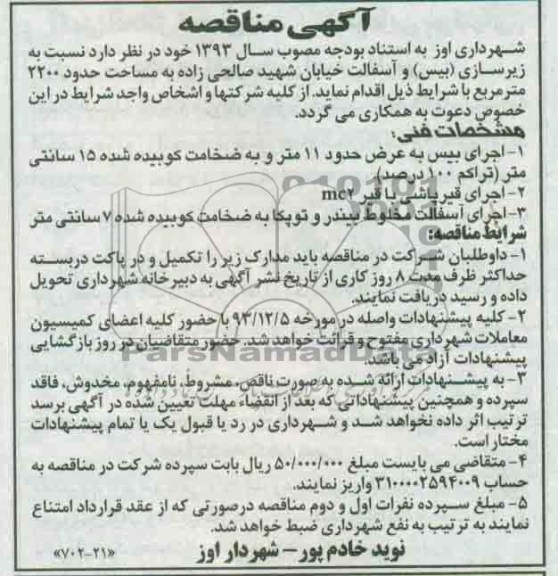 آگهی مناقصه
شهرداری اوز به استناد بودجه مصوب سال ۱۳۹۳ خود در نظر دارد نسبت به
زیرسازی (بیس) و آسفالت خیابان شهید صالحی زاده به مساحت حدود ۲۲۰۰
مترمربع با شرایط ذیل اقدام نماید. از کلیه شرکتها و اشخاص واجد شرایط در این
خصوص دعوت به همکاری می گردد.
مشخصات فنی:
۱- اجرای بیس به عرض حدود ۱۱ متر و به ضخامت کوبیده شده ۱۵ سانتی
متر (تراکم ۱۰۰ درصد)
۲- اجرای قیرپاشی با قیر mc۲
۳- اجرای آسفالت مخلوط بیندر و توپکا به ضخامت کوبیده شده ۷ سانتی متر
شرایط مناقصه:
۱- داوطلبان شرکت در مناقصه باید مدارک زیر را تکمیل و در پاکت دربسته
حداکثر ظرف مدت ۸ روز کاری از تاریخ نشر آگهی به دبیرخانه شهرداری تحویل
داده و رسید دریافت نمایند.
۲- کلیه پیشنهادات واصله در مورخه ۹۳/۱۲/۵ با حضور کلیه اعضای کمیسیون
معاملات شهرداری مفتوح و قرائت خواهد شد. حضور متقاضیان در روز بازگشایی
پیشنهادات آزاد می باشد.
ParsNamadData
۳- به پیشنهادات ارائه شده به صورت ناقص، مشروط، نامفهوم، مخدوش، فاقد
سپرده و همچنین پیشنهاداتی که بعد از انقضاء مهلت تعیین شده در آگهی برسد
ترتیب اثر داده نخواهد شد و شهرداری در رد یا قبول یک یا تمام پیشنهادات
مختار است.
۴- متقاضی می بایست مبلغ ۵۰/۰۰۰/۰۰۰ ریال بابت سپرده شرکت در مناقصه به
حساب ۳۱۰۰۰۰۲۵۹۴۰۰۹ واریز نمایند.
۵- مبلغ سپرده نفرات اول و دوم مناقصه درصورتی که از عقد قرارداد امتناع
نمایند به ترتیب به نفع شهرداری ضبط خواهد شد.
نوید خادم پور – شهردار اوز «۷۰۲-۲۱»